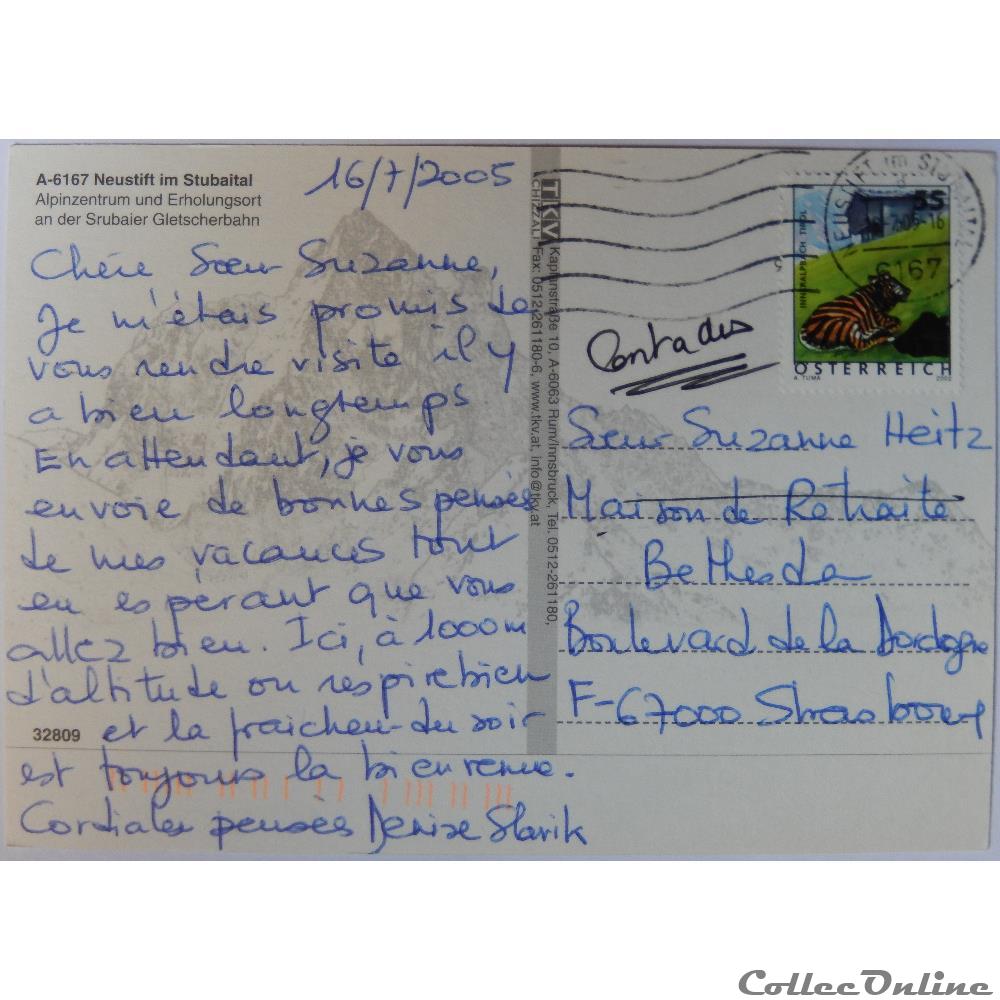 A-6167 Neustift im Stubaital
Alpinzentrum und Erholungsort
an der Srubaier Gletscherbahn
16/7/2005
Chère Sœur Suzanne,
Je m'étais promis de
vous rendre visite il y
a bien longtemps
En attendant, je vous
envoie de bonnes pensées
de mes vacances tout
en espérant que vous
allez bien. Ici, à 1000m
d'altitude on respire bien
et la fraicheur du soir
est toujours la bienvenue.
Cordiales pensées Denise Slavik
32809
TKV Kaplanstraße 10, A-6063 Rum/Innsbruck, Tel. 0512-261180,
CHIZZALI Fax: 0512-261180-6, www.tkv.at, info@tkv.at
NEUSTIFT IM STUBAITAL
6167
55
INNERALPBACH TIROL
ÖSTERREICH
A. TUMA 2002
Contades
Sœur Suzanne Heitz
Maison de Retraite
Bethesda
Boulevard de la Dordogne
F-67000 Strasbourg
CollecOnline